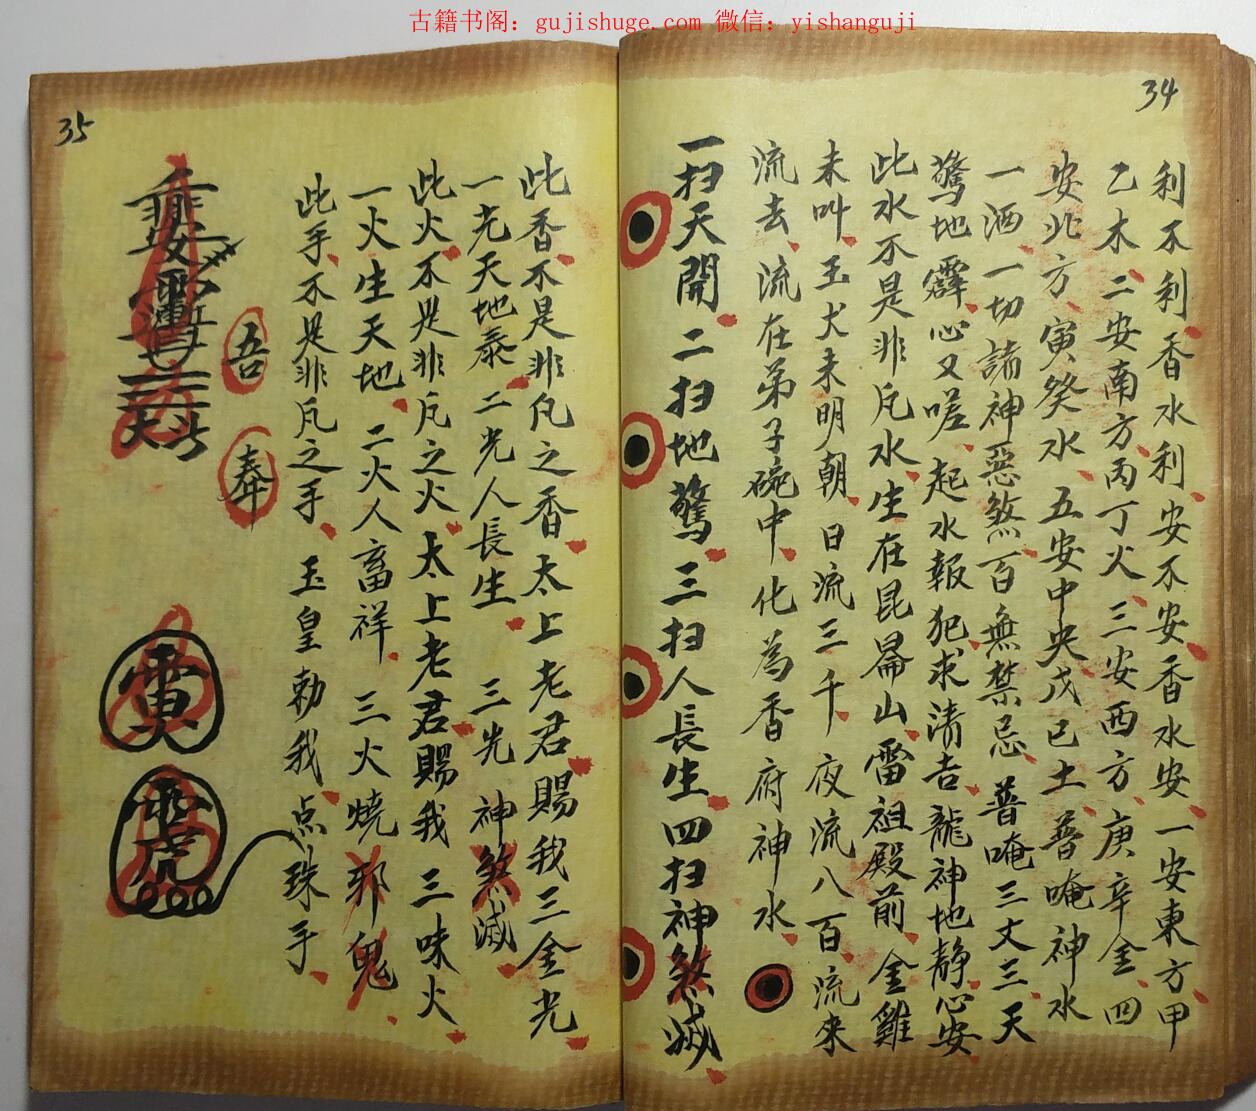 古籍书阁：gujishuge.com 微信：yishanguji
34
利不利香水利安不安香水安一安東方甲
乙木二安南方丙丁火三安西方庚辛金四
安北方寅癸水五安中央戊己土普唵神水
一洒一切諸神惡煞百無禁忌普唵三丈三天
驚地霹心又嗟起水報犯求清吉龍神地静心安
此水不是非凡水生在昆崙山雷祖殿前金雞
未叫玉犬未明朝日流三千夜流八百流來
流去流在弟子碗中化為香府神水
一扫天開二扫地驚三扫人長生四扫神煞滅
35
此香不是非凡之香太上老君賜我三金光
一光天地泰二光人長生三光神煞滅
此火不是非凡之火太上老君賜我三味火
一火生天地二火人畜祥三火燒邪鬼
此手不是非凡之手玉皇勅我点珠手
吾
奉